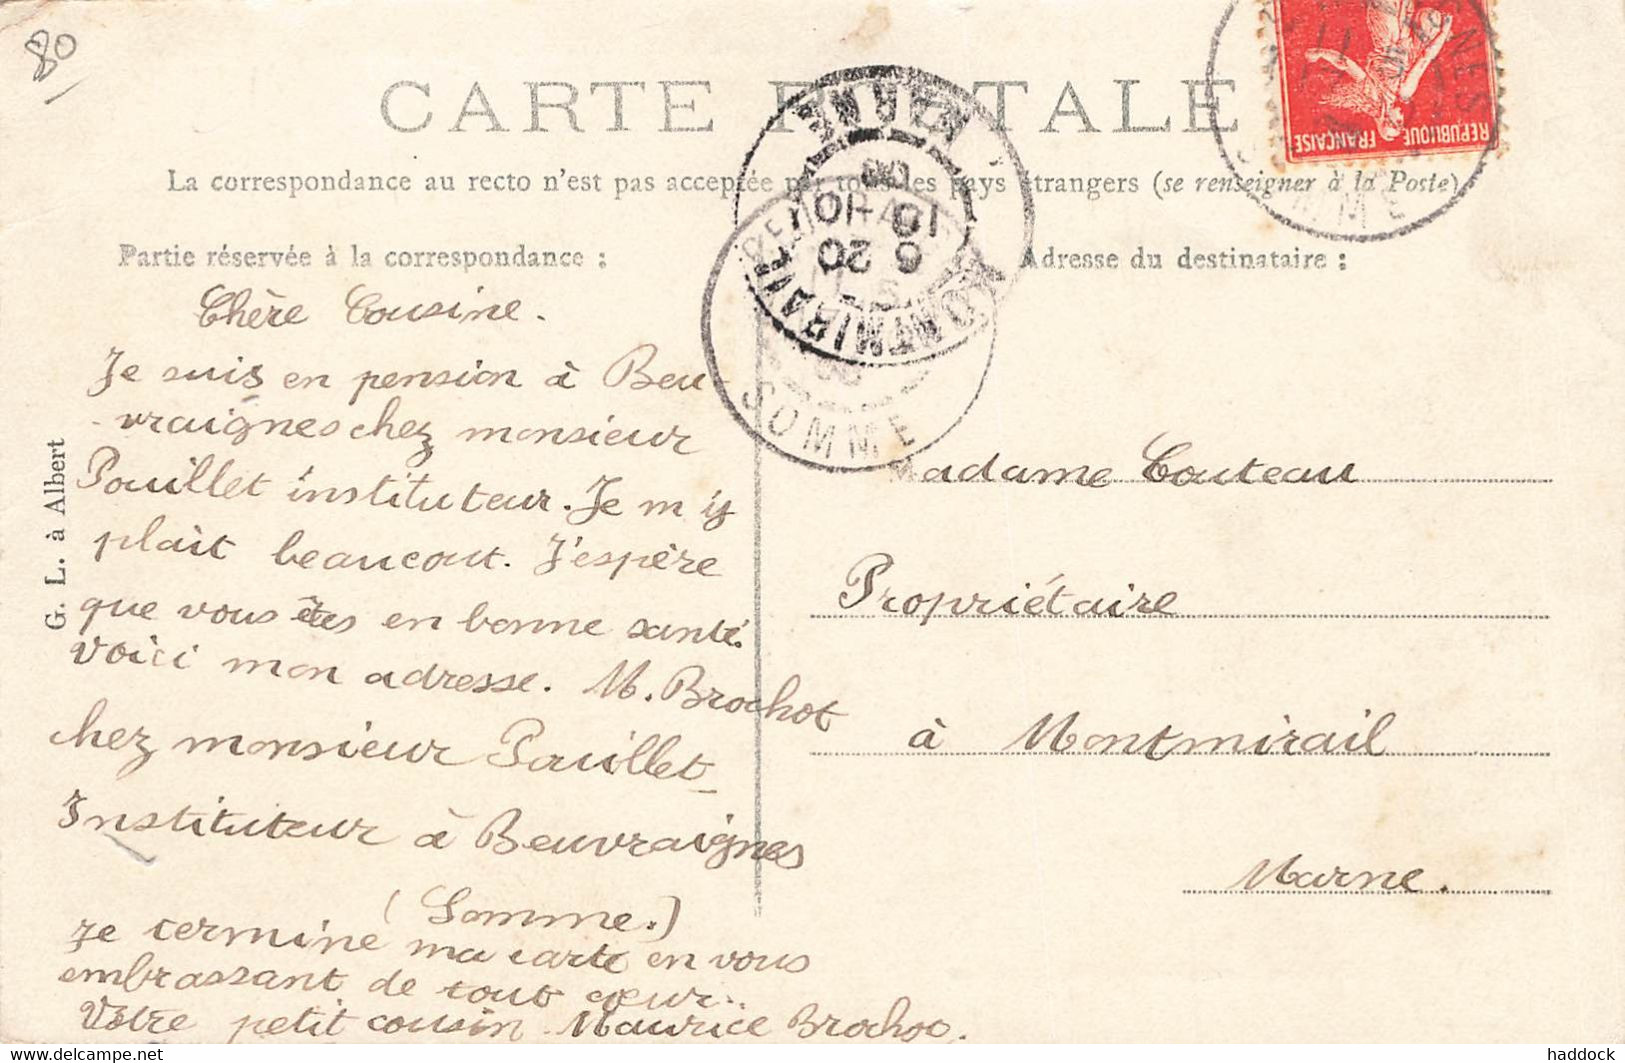 80
CARTE POSTALE
La correspondance au recto n'est pas acceptée par tous les pays étrangers (se renseigner à la Poste)
REPUBLIQUE FRANÇAISE
SOMME
MARNE
MONTMIRAIL
6 20
10 - 10
08
SOMME
Partie réservée à la correspondance :
Adresse du destinataire :
Chère Cousine.
Je suis en pension à Beu
-vraignes chez monsieur
Pouillet instituteur. Je m'y
plaît beaucout. J'espère
que vous êtes en bonne santé.
Voici mon adresse. M. Brochot
chez monsieur Pouillet
Instituteur à Beuvraignes
(Somme.)
Je termine ma carte en vous
embrassant de tout cœur..
Vôtre petit cousin Maurice Brochot.
Madame Couteau
Propriétaire
à Montmirail
Marne.
G. L. à Albert
haddock